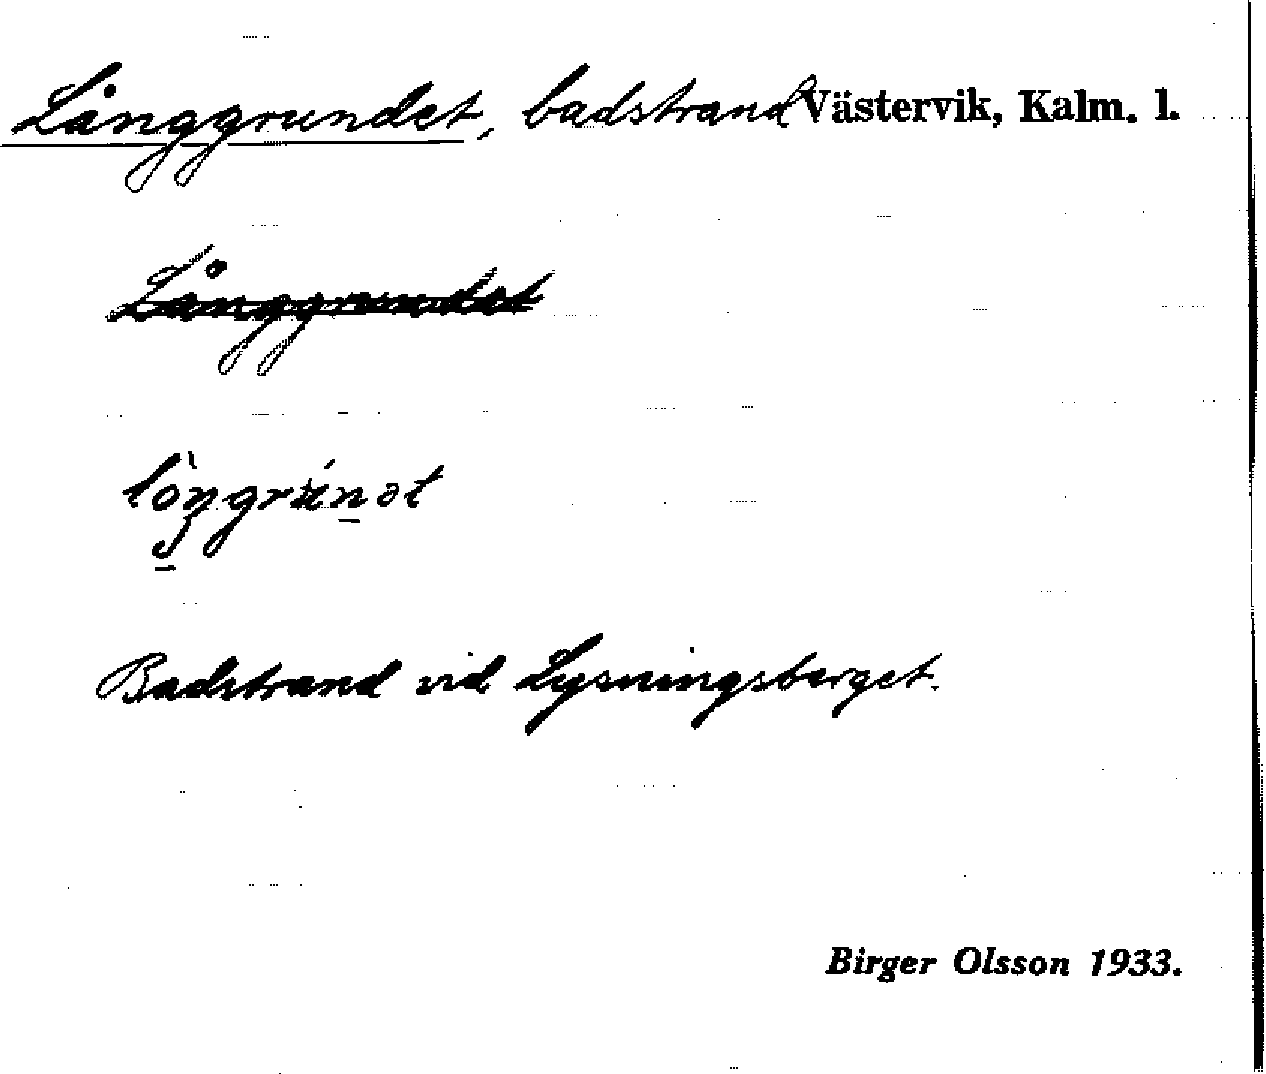 Långgrundet, badstrand Västervik, Kalm. l.
Långgrundet
Badstrand vid Lysningsberget.
Birger Olsson 1933.